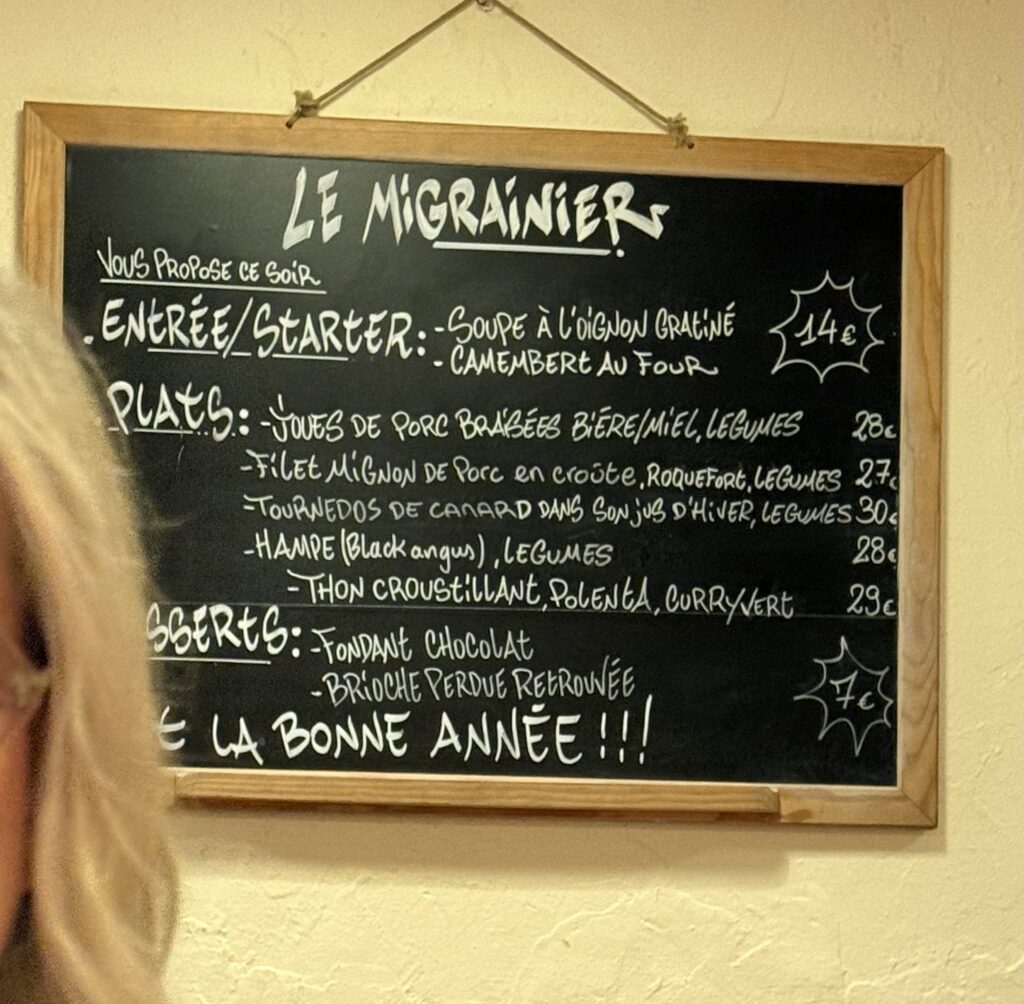 LE MIGRAINIER
VOUS PROPOSE CE SOIR
. ENTRÉE/STARTER: - SOUPE À L'OIGNON GRATINÉ 14€
- CAMEMBERT AU FOUR
PLATS: - JOUES DE PORC BRAISÉES BIÈRE/MIEL, LEGUMES 28€
- FILET MIGNON DE PORC en croûte, ROQUEFORT, LEGUMES 27€
- TOURNEDOS DE CANARD DANS SON JUS D'HIVER, LEGUMES 30€
- HAMPE (Black angus), LEGUMES 28€
- THON CROUSTILLANT, POLENTA, CURRY VERT 29€
SSERTS: - FONDANT CHOCOLAT
- BRIOCHE PERDUE RETROUVÉE 7€
E LA BONNE ANNÉE !!!